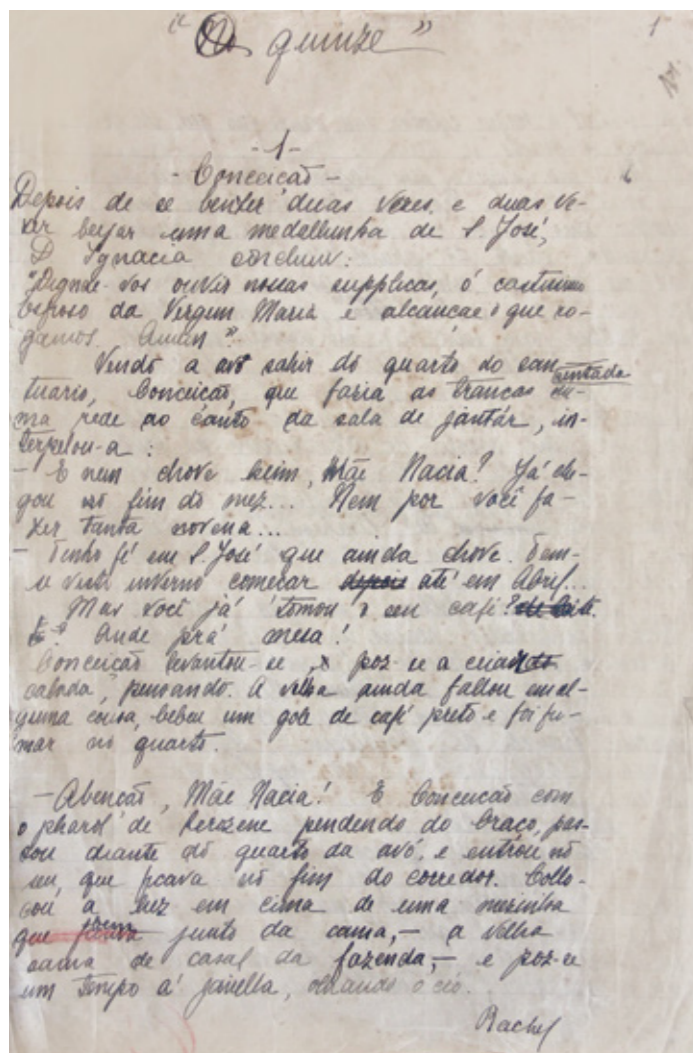 "O quinze"
1
-1-
- Conceição -
Depois de se benzer duas vezes e duas ve-
zes beijar uma medalhinha de S. José,
D Ignacia concluiu:
"Dignde-vos ouvir nossas supplicas, ó castissimo
Esposo da Virgem Maria e alcançae o que ro-
gamos. Amen".
Vendo a avó sahir do quarto do san-
tuario, Conceição, que fazia as tranças sentada nu-
ma rede ao canto da sala de jantár, in-
terpelou-a:
- E nem chove heim, Mãe Nacia? Já che-
gou no fim do mez... Nem por você fa-
zer tanta novena...
- Tenho fé em S. José que ainda chove. Tem-
se visto inverno começar depois até em Abril...
Mas você já tomou o seu café? de leite.
Ande prá mesa!
Conceição levantou-se, poz-se a
calada, pensando. A velha ainda fallou em al-
guma cousa, bebeu um gole de café preto e foi fu-
mar no quarto.
- Abenção, Mãe Nacia! E Conceição com
o pharol de kerozene pendendo do braço, pas-
sou diante do quarto da avó, e entrou no
seu, que ficava no fim do corredor. Collo-
cou a luz em cima de uma mezinha
que junto da cama, - a velha
cama de casal da fazenda, - e poz-se
um tempo á janella, olhando o céo.
Rachel